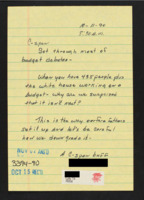 10-11-90
5:30 A.M.
C-Span:
Sat through most of
budget debates.
When you have 435 people plus
the white house working on a
budget - why are we surprised
that it isn't neat?
This is the way our forefathers
set it up and let's be careful
how we downgrade it.
A C-Span buff
3394-90
OCT 15 REC'D